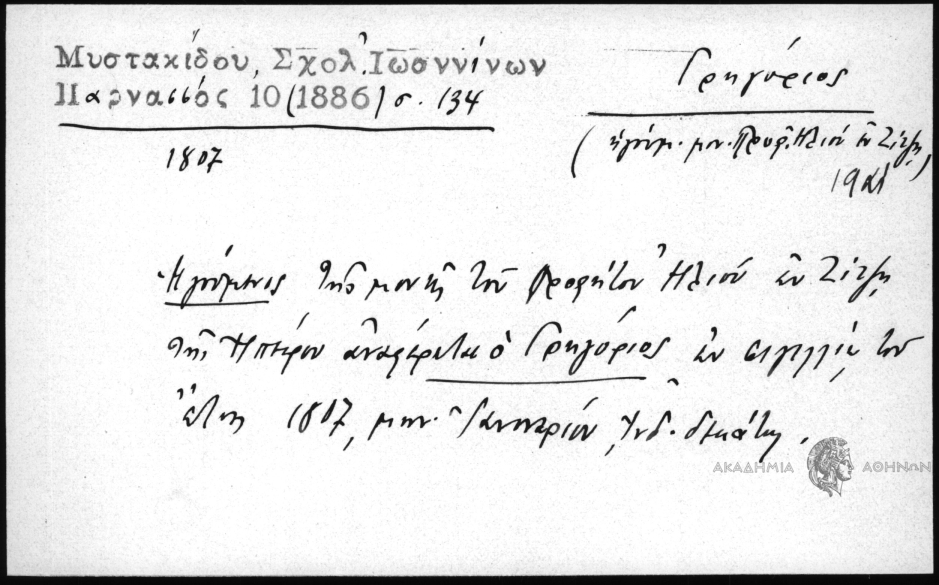 Μυστακίδου, Σχολ. Ἰωαννίνων
Παρνασσός 10 (1886) σ. 134
1807
Γρηγόριος
(ἡγούμ. μον. Προφ. Ἠλιού ἐν Ζίτσῃ)
19ος
Ἡγούμενος τῆς μονῆς τοῦ Προφήτου Ἠλιού ἐν Ζίτσῃ
τῆς Ἠπείρου ἀναφέρεται ὁ Γρηγόριος ἐν σιγιλλίῳ τοῦ
ἔτους 1807, μην. Ἰαννουαρίου, Ἰνδ. δεκάτης.
ΑΚΑΔΗΜΙΑ ΑΘΗΝΩΝ